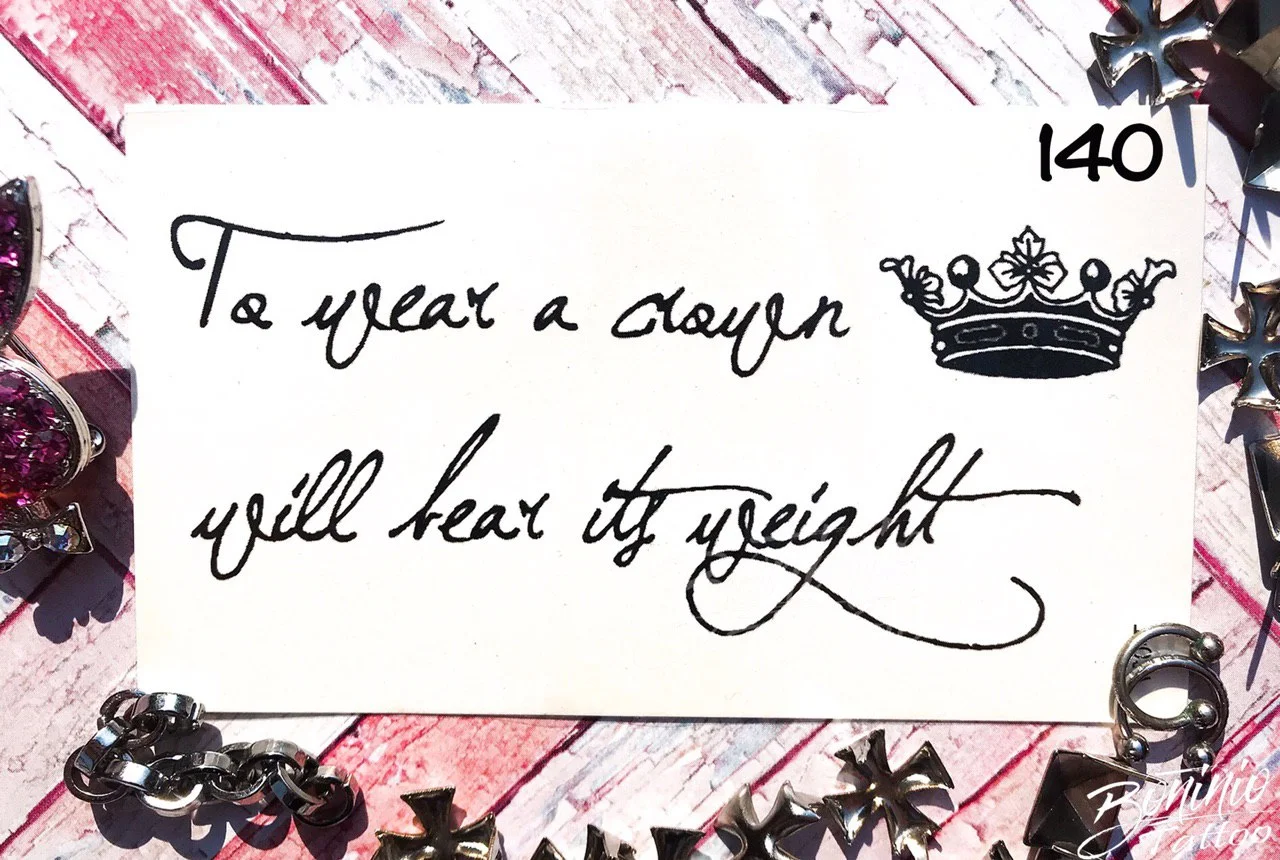 140
To wear a crown
will bear its weight
Boninio
Tattoo